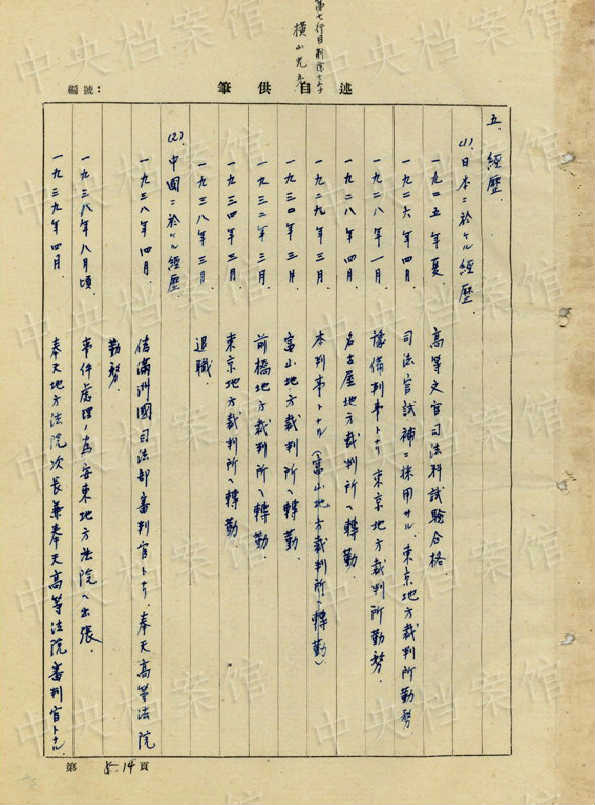 第七行目削除十六字
横山光彦
編號:
述自供筆
五、經歷.
(1) 日本ニ於ケル經歷.
一九二五年夏. 高等文官司法科試驗合格.
一九二六年四月. 司法官試補ニ採用サル、東京地方裁判所勤務
一九二八年一月. 豫備判事トナリ東京地方裁判所勤務.
一九二八年四月. 名古屋地方裁判所ヘ轉勤.
一九二九年三月. 本判事トナル(富山地方裁判所ヘ轉勤)
一九三〇年三月. 富山地方裁判所ヘ轉勤.
一九三二年三月. 前橋地方裁判所ヘ轉勤.
一九三四年三月. 東京地方裁判所ヘ轉勤.
一九三八年三月. 退職.
(2) 中國ニ於ケル經歷.
一九三八年四月. 偽滿洲國司法部審判官トナリ、奉天高等法院
勤務.
一九三八年八月頃. 事件處理ノ為安東地方法院ヘ出張.
一九三九年四月. 奉天地方法院次長兼奉天高等法院審判官トナル.
第 5-14 頁
中央档案馆